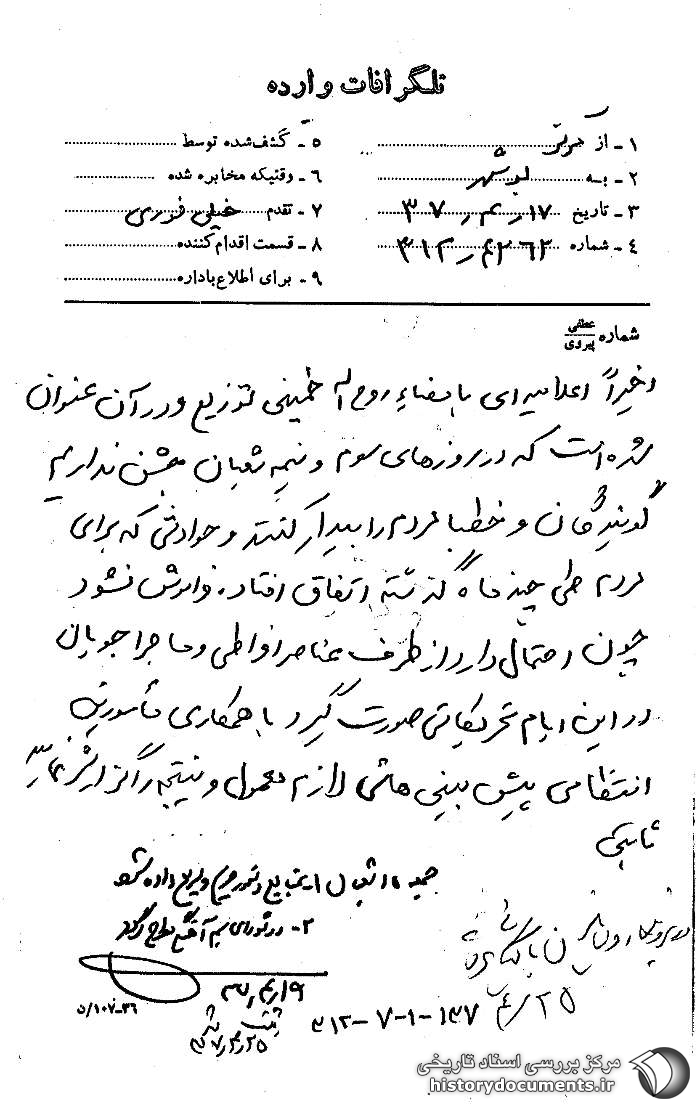 تلگرافات وارده
۱ـ از مرکز
۲ـ به بوشهر
۳ـ تاریخ ۱۷ر۴ر۳۷
۴ـ شماره ۳۱۲ر۴۲۶۲
۵ـ کشف شده توسط
۶ـ وقتیکه مخابره شده
۷ـ تقدم خیلی فوری
۸ـ قسمت اقدام کننده
۹ـ برای اطلاع باداره
شماره عطفی پیروی
اخیراً اعلامیه‌ای بامضاء روح اله خمینی توزیع و در آن عنوان
شده است که در روزهای سوم و نیمه شعبان جشن نداریم
گویندگان و خطبا مردم را بیدار کنند و حوادثی که برای
مردم طی چند ماه گذشته اتفاق افتاده فراموش نشود
چون احتمال دارد از طرف عناصر افراطی و ماجراجویان
در این ایام تحریکاتی صورت گیرد با همکاری مأمورین
انتظامی پیش بینی های لازم معمول و نتیجه را گزارش نمائید
ثابتی
۲ـ در شورای
۱۹ر۴ر۳۷
۵/۱۰۷-۳۶
ثبت شد
۳۱۲-۷-۱-۱۳۷
۲۵ر۴
مرکز بررسی اسناد تاریخی
historydocuments.ir